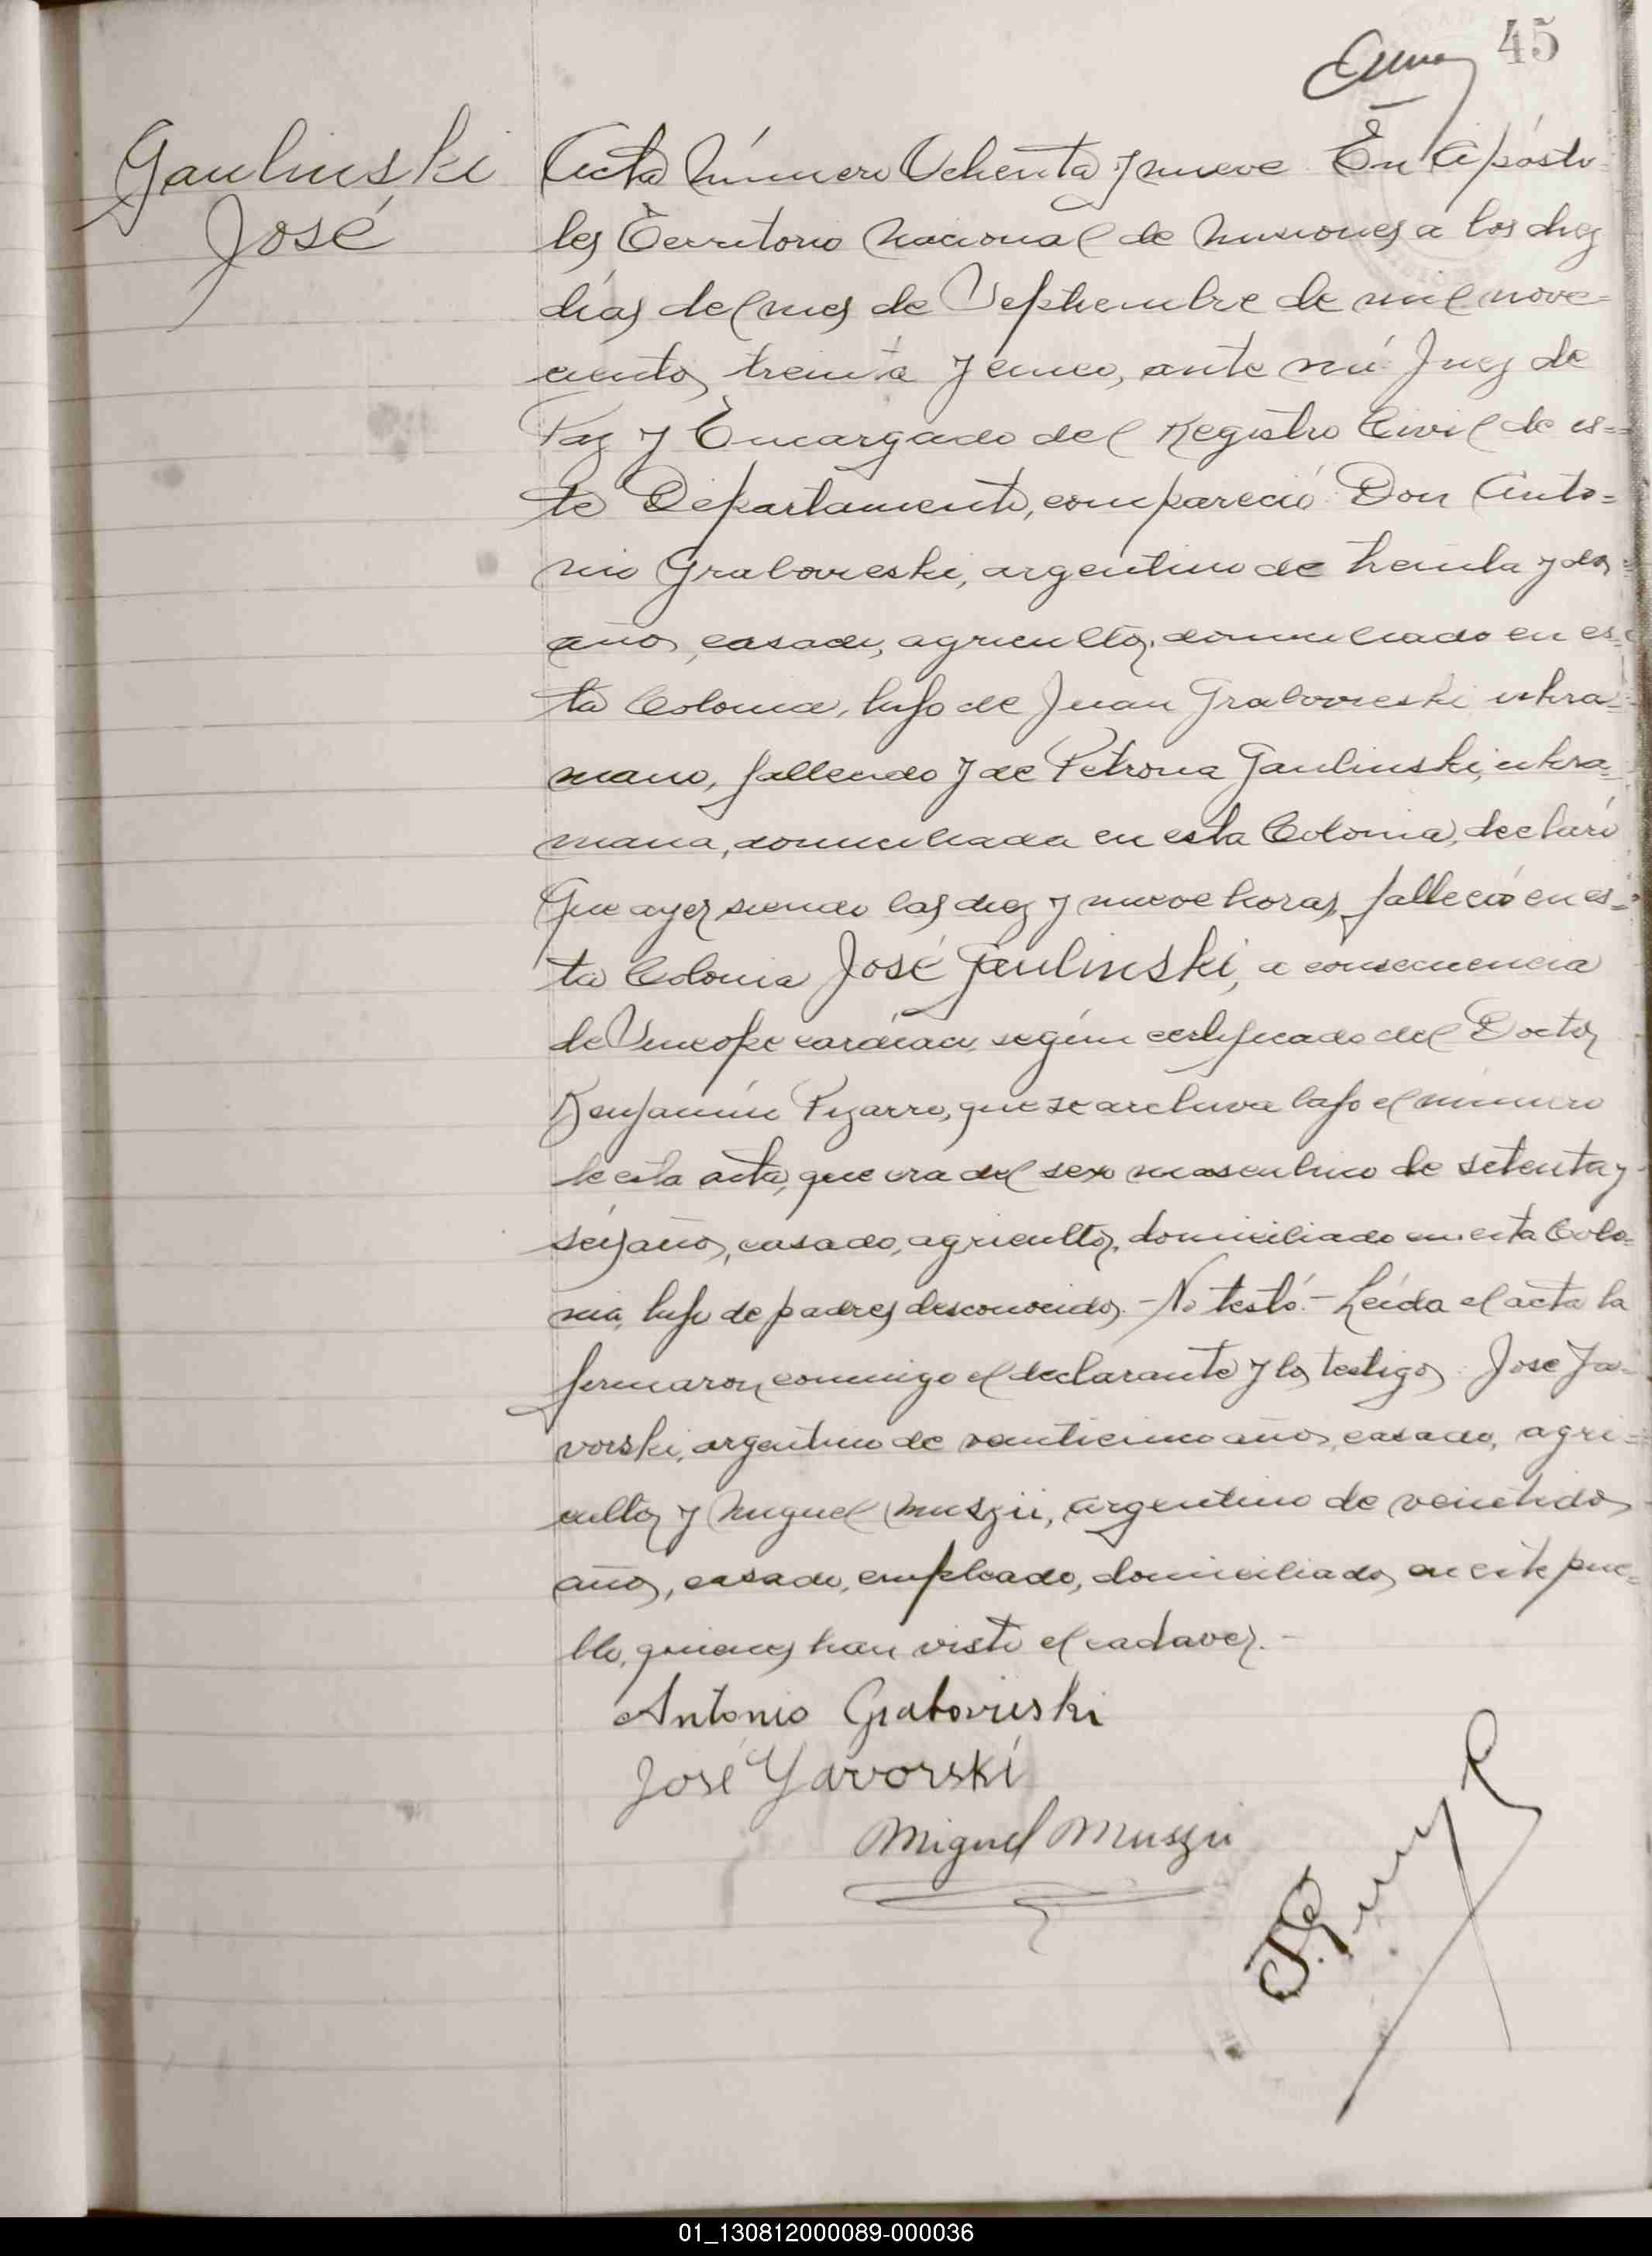 45
Gaulinski
José
Acta Número Ochenta y nueve En Apósto-
les Territorio Nacional de Misiones a los diez
días del mes de Septiembre de mil nove=
cientos treinta y cinco, ante mí Juez de
Paz y Encargado del Registro Civil de es=
te Departamento, compareció Don Anto=
nio Grabovieski, argentino de treinta y dos
años, casado, agricultor, domiciliado en es=
ta Colonia, hijo de Juan Grabovieski ukra=
niano, fallecido y de Petrona Gaulinski, ukra=
niana, domiciliada en esta Colonia, declaró
Que ayer siendo las diez y nueve horas falleció en es=
ta Colonia José Gaulinski, a consecuencia
de Síncope cardíaco según certificado del Doctor
Benjamín Pizarro, que se archiva bajo el número
de esta acta, que era del sexo masculino de setenta y
seis años, casado, agricultor, domiciliado en esta Colo=
nia, hijo de padres desconocidos. - No testó. - Leída el acta la
firmaron conmigo el declarante y los testigos José Ja=
vorski, argentino de veinticinco años, casado, agri=
cultor y Miguel Muszii, argentino de veintidos
años, casado, empleado, domiciliados en este pue=
blo, quienes han visto el cadaver. -
Antonio Grabovieski
José Yavorski
Miguel Muszii
01_130812000089-000036